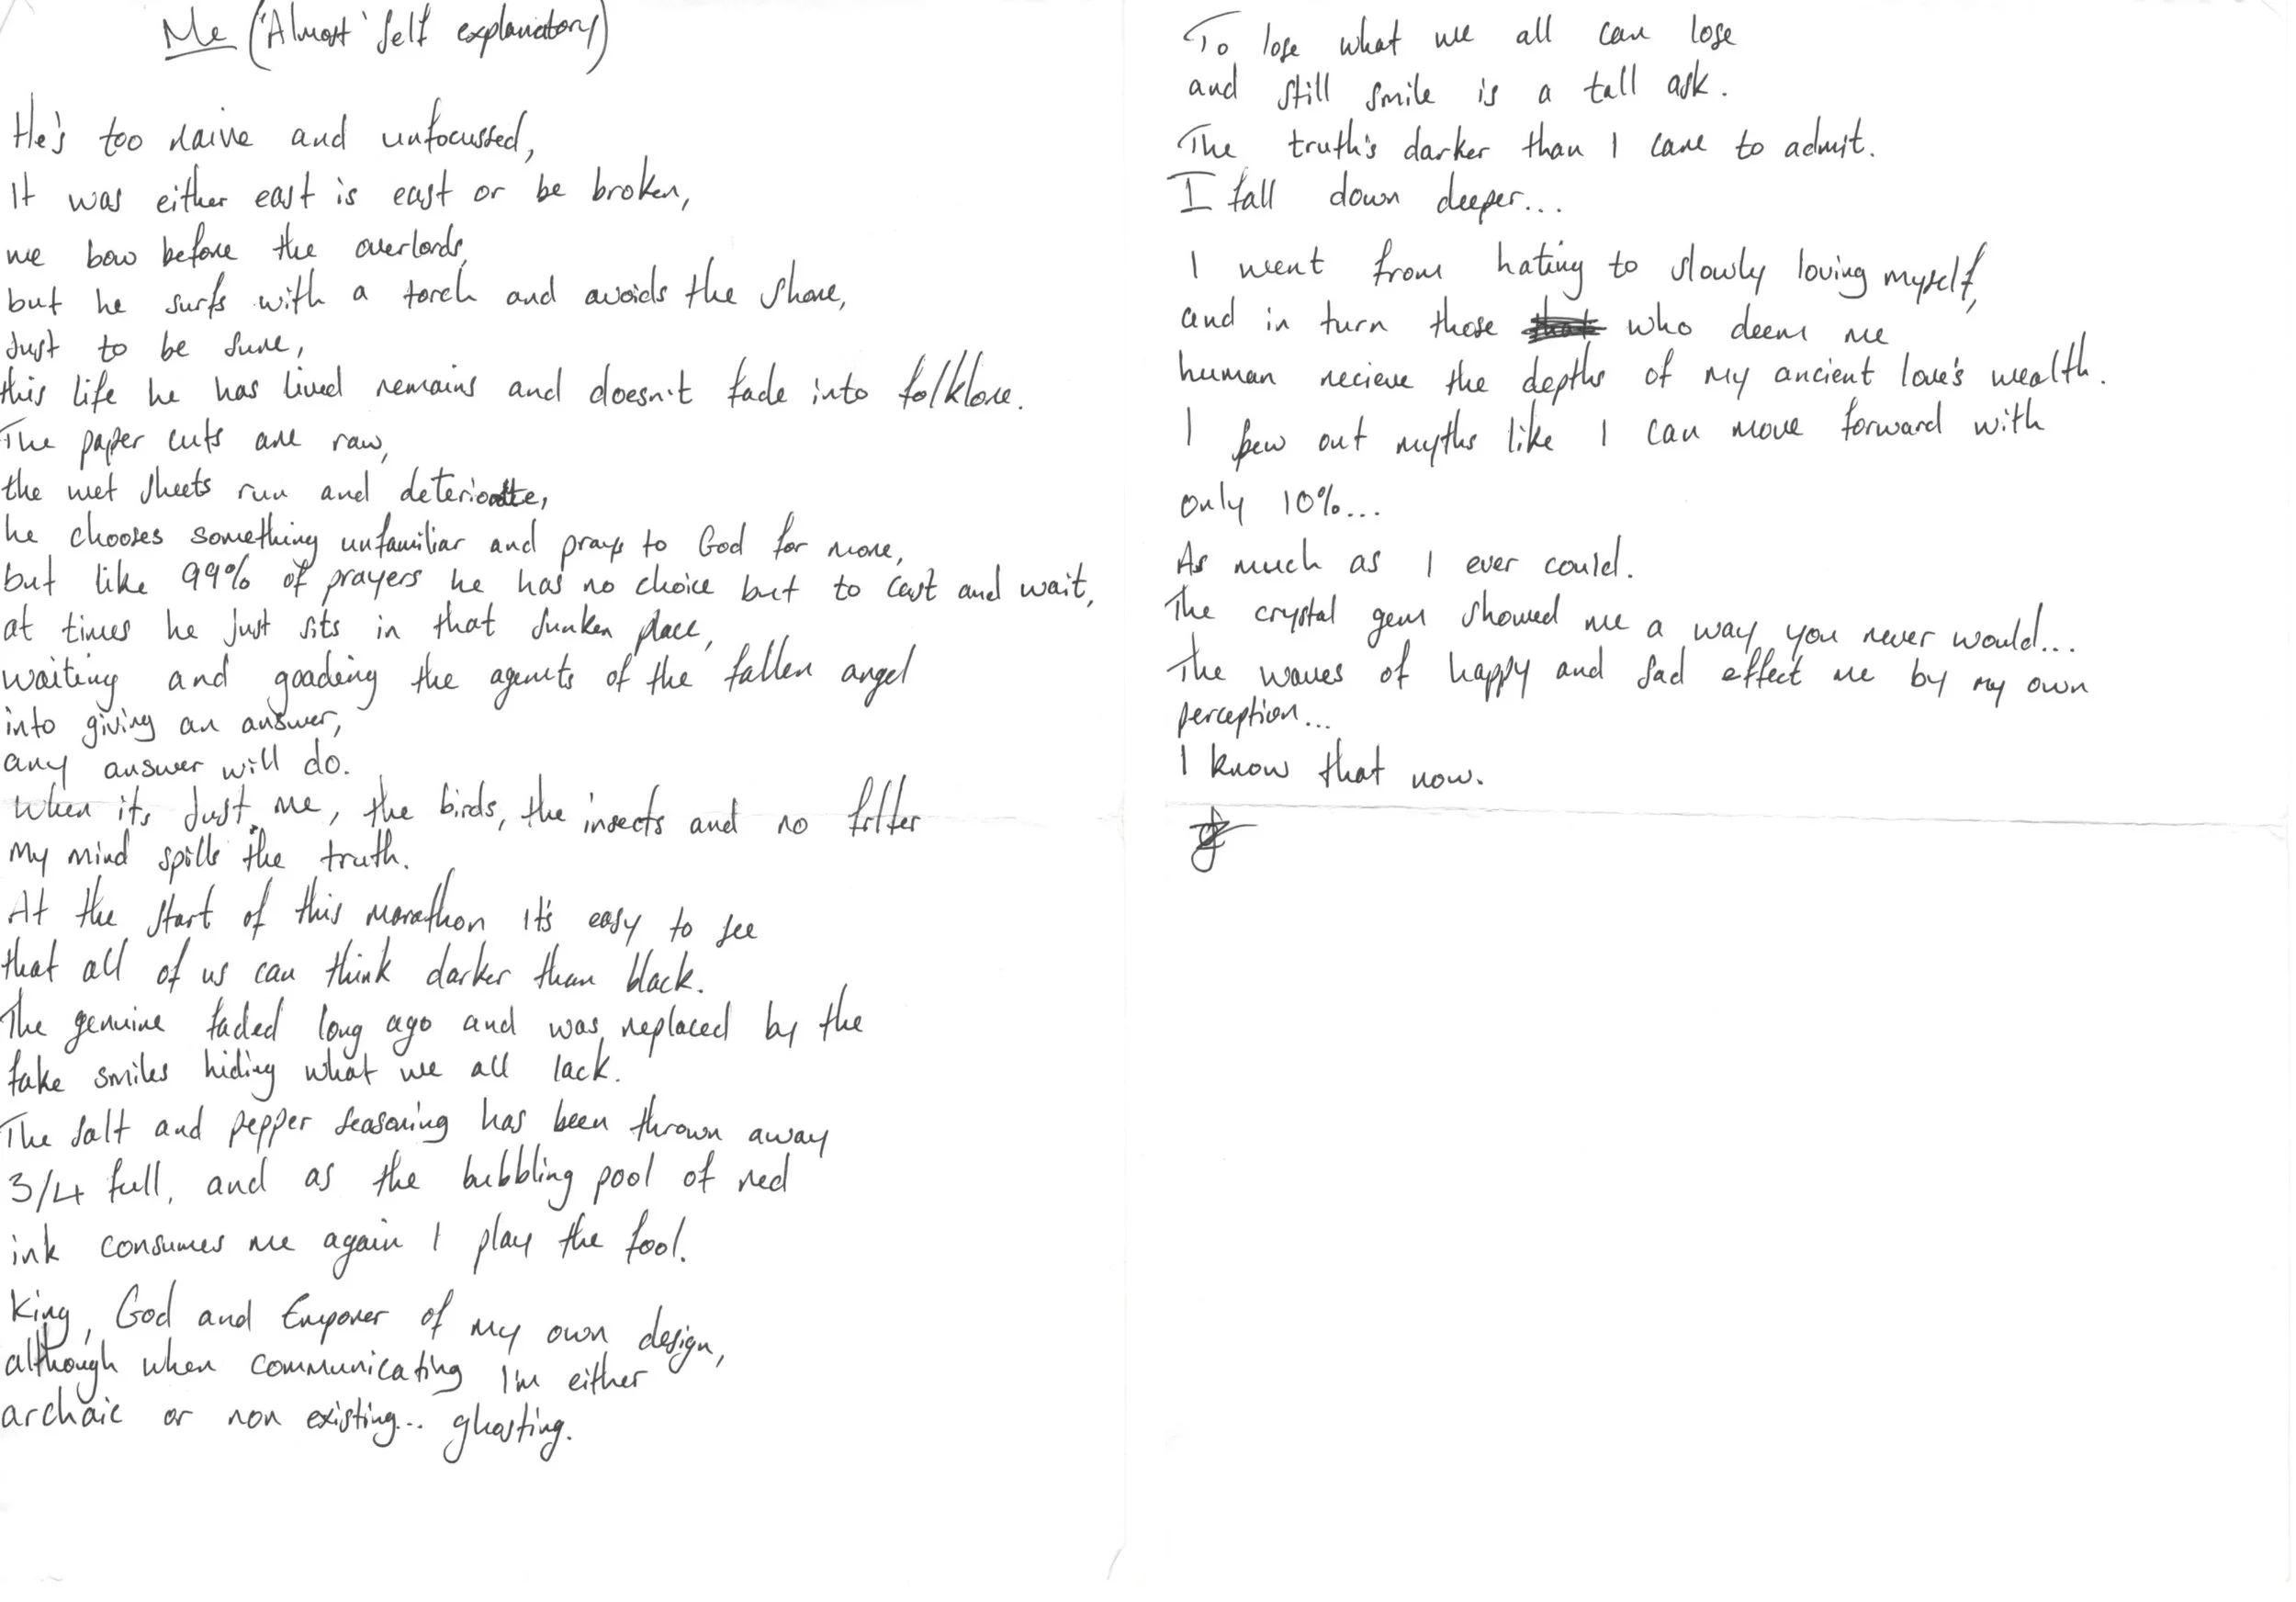 Me ('Almost' self explanatory)
He's too naive and unfocussed,
It was either east is east or be broken,
we bow before the overlords,
but he surfs with a torch and avoids the shore,
Just to be sure,
this life he has lived remains and doesn't fade into folklore.
The paper cuts are raw,
the wet sheets run and deteriorate,
he chooses something unfamiliar and prays to God for more,
but like 99% of prayers he has no choice but to cast and wait,
at times he just sits in that sunken place,
waiting and goading the agents of the fallen angel
into giving an answer,
any answer will do.
When its just me, the birds, the insects and no filter
My mind spills the truth.
At the start of this marathon it's easy to see
that all of us can think darker than black.
The genuine faded long ago and was replaced by the
fake smiles hiding what we all lack.
The salt and pepper seasoning has been thrown away
3/4 full, and as the bubbling pool of red
ink consumes me again I play the fool.
King, God and Emporer of my own design,
although when communicating I'm either
archaic or non existing... ghosting.
To lose what we all can lose
and still smile is a tall ask.
The truth's darker than I care to admit.
I fall down deeper...
I went from hating to slowly loving myself,
and in turn those who deem me
human recieve the depths of my ancient love's wealth.
I pew out myths like I can move forward with
only 10%...
As much as I ever could.
The crystal gem showed me a way you never would...
The waves of happy and sad effect me by my own
perception...
I know that now.